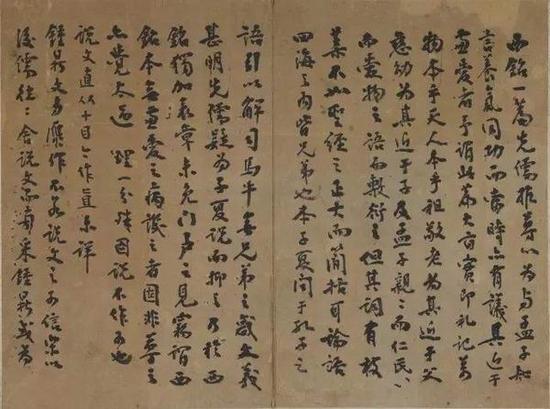 西銘一篇先儒推尊以為与孟子知
言養氣同功而當時亦有議其近于
兼愛者予謂此篇大旨實即礼記萬
物本乎天人本乎祖敬老為其近于父
慈幼為其近于子及孟子親〻而仁民
而愛物之語而敷衍之但其詞有枝
葉不如聖經之正大而簡括可論語
四海之內皆兄弟也本子夏聞于孔子之
語引以解司馬牛無兄弟之戚文義
甚明先儒疑為子夏說而抑之乃於西
銘獨加表章未免門戶之見竊謂西
銘本無兼愛之病議之者固非尊之
亦覺太過 理一分殊因說不作可也
說文直从十目 作直未詳
鍾鼎文多贗作不若說文之可信宋以
後儒往〻舍說文而 采鍾鼎或為